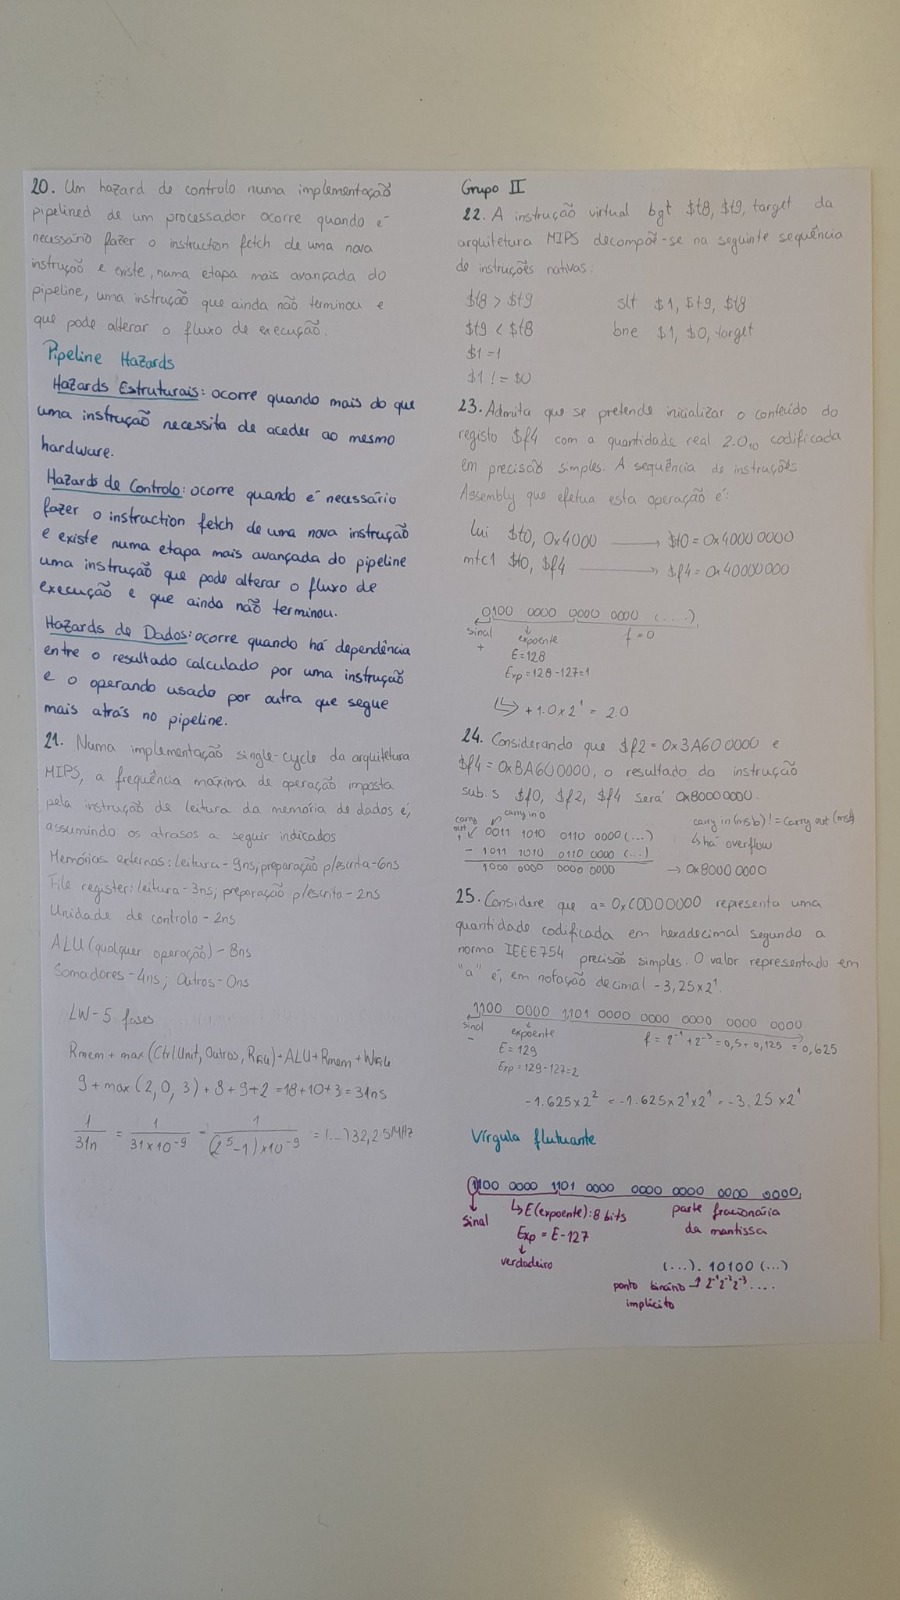 20. Um hazard de controlo numa implementação
pipelined de um processador ocorre quando é
necessário fazer o instruction fetch de uma nova
instrução e existe, numa etapa mais avançada do
pipeline, uma instrução que ainda não terminou e
que pode alterar o fluxo de execução.
Pipeline Hazards
Hazards Estruturais: ocorre quando mais do que
uma instrução necessita de aceder ao mesmo
hardware.
Hazards de Controlo: ocorre quando é necessário
fazer o instruction fetch de uma nova instrução
e existe numa etapa mais avançada do pipeline
uma instrução que pode alterar o fluxo de
execução e que ainda não terminou.
Hazards de Dados: ocorre quando há dependência
entre o resultado calculado por uma instrução
e o operando usado por outra que segue
mais atrás no pipeline.
21. Numa implementação single-cycle da arquitetura
MIPS, a frequência máxima de operação imposta
pela instrução de leitura da memória de dados é,
assumindo os atrasos a seguir indicados
Memórias externas: leitura - 9ns; preparação p/escrita - 6ns
File register: leitura - 3ns; preparação p/escrita - 2ns
Unidade de controlo - 2ns
ALU (qualquer operação) - 8ns
Somadores - 4ns; Outros - 0ns
LW - 5 fases
Rmem + max (CtrlUnit, Outros, RFILE) + ALU + Rmem + WFILE
9 + max (2, 0, 3) + 8 + 9 + 2 = 18 + 10 + 3 = 31ns
1/31n = 1/31x10^-9 = 1/(2^5-1)x10^-9 = (...) 32,25MHz
Grupo II
22. A instrução virtual bgt $t8, $t9, target da
arquitetura MIPS decompõe-se na seguinte sequência
de instruções nativas:
$t8 > $t9 slt $1, $t9, $t8
$t9 < $t8 bne $1, $0, target
$1 = 1
$1 != $0
23. Admita que se pretende inicializar o conteúdo do
registo $f4 com a quantidade real 2.0₁₀ codificada
em precisão simples. A sequência de instruções
Assembly que efetua esta operação é:
lui $t0, 0x4000 → $t0 = 0x4000 0000
mtc1 $t0, $f4 → $f4 = 0x40000000
0100 0000 0000 0000 (....)
sinal expoente f = 0
+ E = 128
Exp = 128 - 127 = 1
↳ + 1.0 x 2¹ = 2.0
24. Considerando que $f2 = 0x3A60 0000 e
$f4 = 0xBA60 0000, o resultado da instrução
sub.s $f0, $f2, $f4 será 0x8000 0000.
carry out 1 carry in 0 carry in (msb) != carry out (msb)
0011 1010 0110 0000 (...) ↳ há overflow
- 1011 1010 0110 0000 (...)
1000 0000 0000 0000 → 0x8000 0000
25. Considere que a = 0xC0D00000 representa uma
quantidade codificada em hexadecimal segundo a
norma IEEE754 precisão simples. O valor representado em
"a" é, em notação decimal -3,25x2¹.
1100 0000 1101 0000 0000 0000 0000 0000
sinal expoente f = 2^-1 + 2^-3 = 0,5 + 0,125 = 0,625
- E = 129
Exp = 129 - 127 = 2
-1.625x2² = -1.625x2¹x2¹ = -3.25x2¹
Vírgula flutuante
1100 0000 1101 0000 0000 0000 0000 0000
sinal ↳ E (expoente): 8 bits parte fracionária
Exp = E - 127 da mantissa
verdadeiro (...). 10100 (...)
ponto binário 2^-1 2^-2 2^-3 ....
implícito